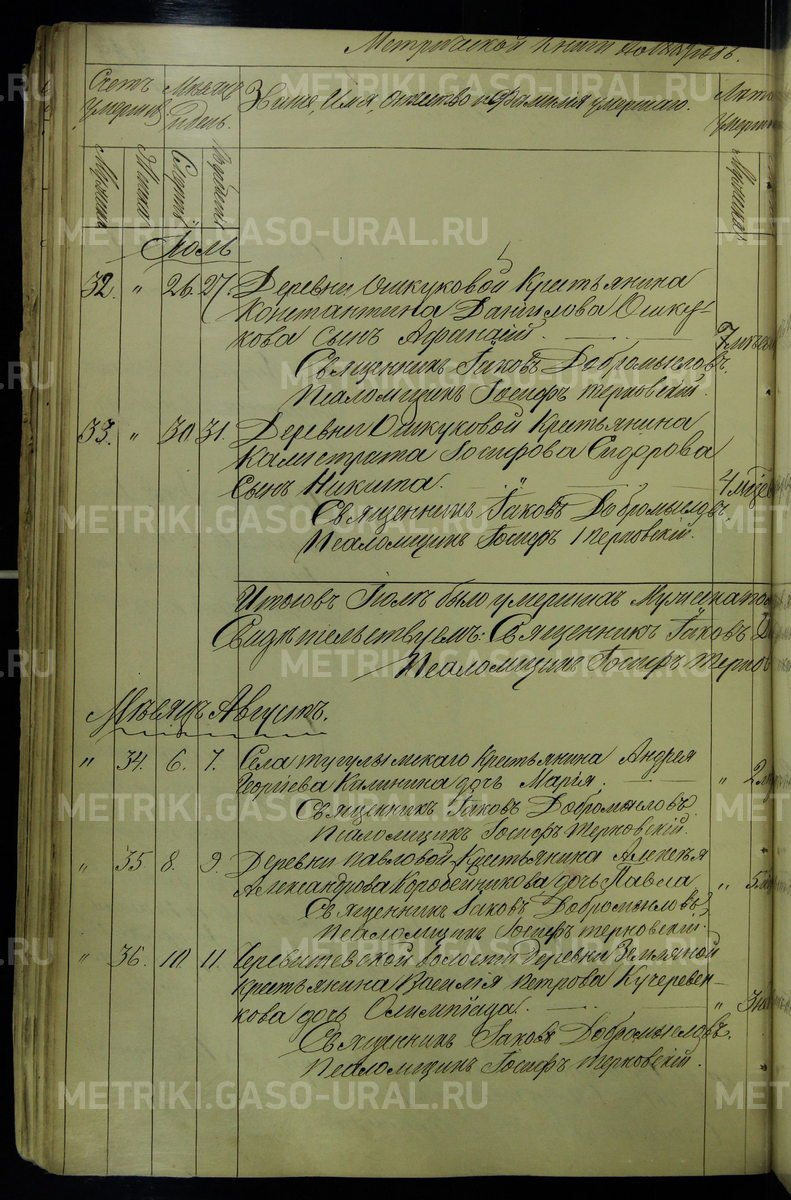 Метрической книги на 1889 годъ.
Счетъ умершихъ
Мѣсяцъ и день.
Званіе, Имя, отчество и фамилія умершаго.
Лѣта умершаго
Мужеска
Женска
Смерти
Погребенія
Мужеска
Іюль
32. " 26. 27. Деревни Ошкуковой Крестьянина
Константина Данилова Ошку-
кова сынъ Афанасій. 7
Священникъ Іаковъ Добромысловъ.
Псаломщикъ Іосифъ Терновскій.
33. " 30. 31. Деревни Ошкуковой Крестьянина
Калистрата Іосифова Сидорова
сынъ Никита. 4
Священникъ Іаковъ Добромысловъ
Псаломщикъ Іосифъ Терновскій.
Итого въ Іюлѣ было умершихъ Мужеска
Свидѣтельствуемъ: Священникъ Іаковъ
Псаломщикъ Іосифъ Тернов
Мѣсяцъ Августъ.
" 34. 6. 7. Села Тугулымскаго Крестьянина Андрея
Георгіева Калинина дочь Марія. " 2
Священникъ Іаковъ Добромысловъ
Псаломщикъ Іосифъ Терновскій.
" 35 8. 9. Деревни Павловой Крестьянина Алексѣя
Александрова Коробейникова дочь Павла " 5
Священникъ Іаковъ Добромысловъ
Псаломщикъ Іосифъ Терновскій.
" 36. 10. 11. Червишевской волости Деревни Земляной
крестьянина Василія Петрова Кучеревен-
кова дочь Олимпіада. " 3
Священникъ Іаковъ Добромысловъ.
Псаломщикъ Іосифъ Терновскій.
METRIKI.GASO-URAL.RU